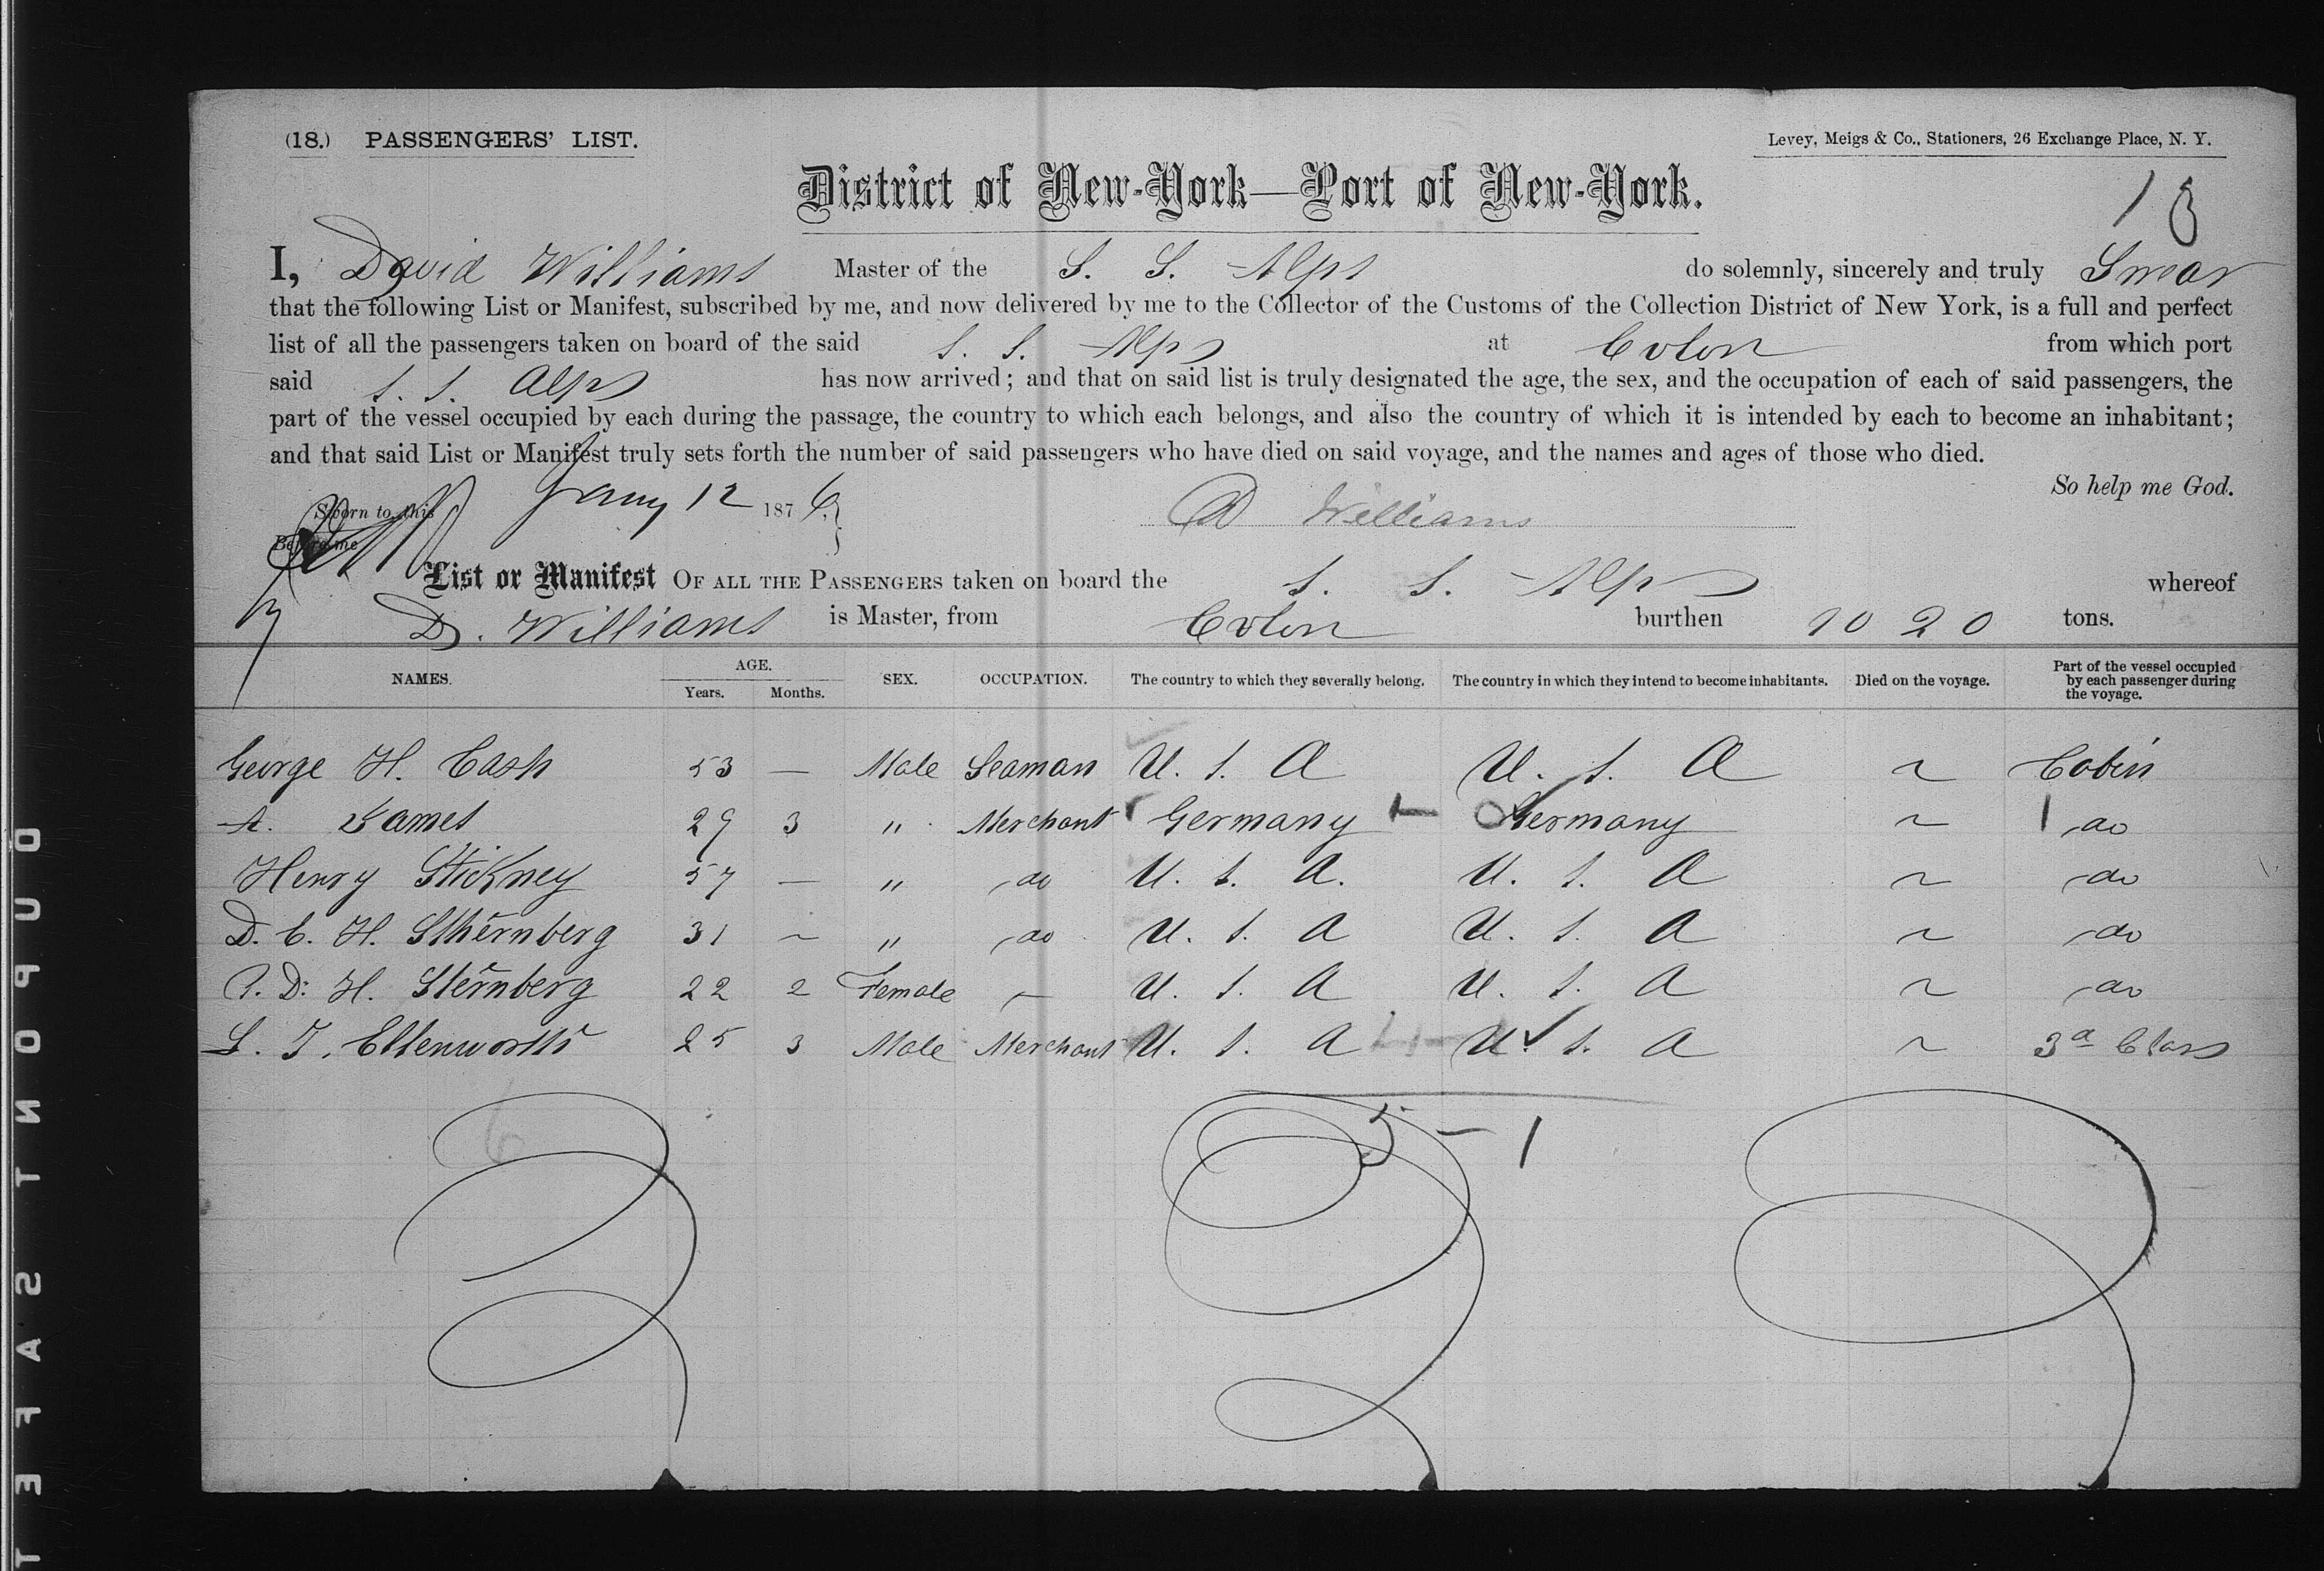 (18.) PASSENGERS' LIST.
Levey, Meigs & Co., Stationers, 26 Exchange Place, N. Y.
District of New-York—Port of New-York.
18
I, David Williams Master of the S. S. Alps do solemnly, sincerely and truly Swear
that the following List or Manifest, subscribed by me, and now delivered by me to the Collector of the Customs of the Collection District of New York, is a full and perfect
list of all the passengers taken on board of the said S. S. Alps at Colon from which port
said S. S. Alps has now arrived; and that on said list is truly designated the age, the sex, and the occupation of each of said passengers, the
part of the vessel occupied by each during the passage, the country to which each belongs, and also the country of which it is intended by each to become an inhabitant;
and that said List or Manifest truly sets forth the number of said passengers who have died on said voyage, and the names and ages of those who died.
So help me God.
Sworn to this Jany 12 1876.
D Williams
Before me
List or Manifest OF ALL THE PASSENGERS taken on board the S. S. Alps whereof
D. Williams is Master, from Colon burthen 1020 tons.
NAMES. AGE. Years. Months. SEX. OCCUPATION. The country to which they severally belong. The country in which they intend to become inhabitants. Died on the voyage. Part of the vessel occupied by each passenger during the voyage.
George H. Cash 53 — Male Seaman U. S. A U. S. A ~ Cabin
A. 29 3 " Merchant Germany Germany ~ do
Henry Stickney 57 — " do U. S. A. U. S. A ~ do
D. C. H. Sthernberg 31 ~ " do U. S. A U. S. A ~ do
D. H. Sternberg 22 2 Female — U. S. A U. S. A ~ do
S. T. Ellenworth 25 3 Male Merchant U. S. A U. S. A ~ 3a Class
6
5 - 1
TEFASTNOPUO